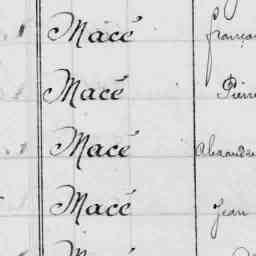 Macé
Macé Pierre
Macé Alexandre
Macé Jean